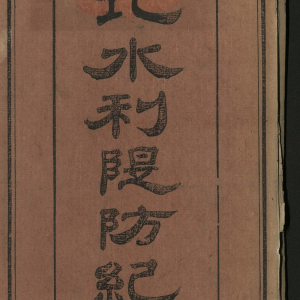 北水利隄防紀